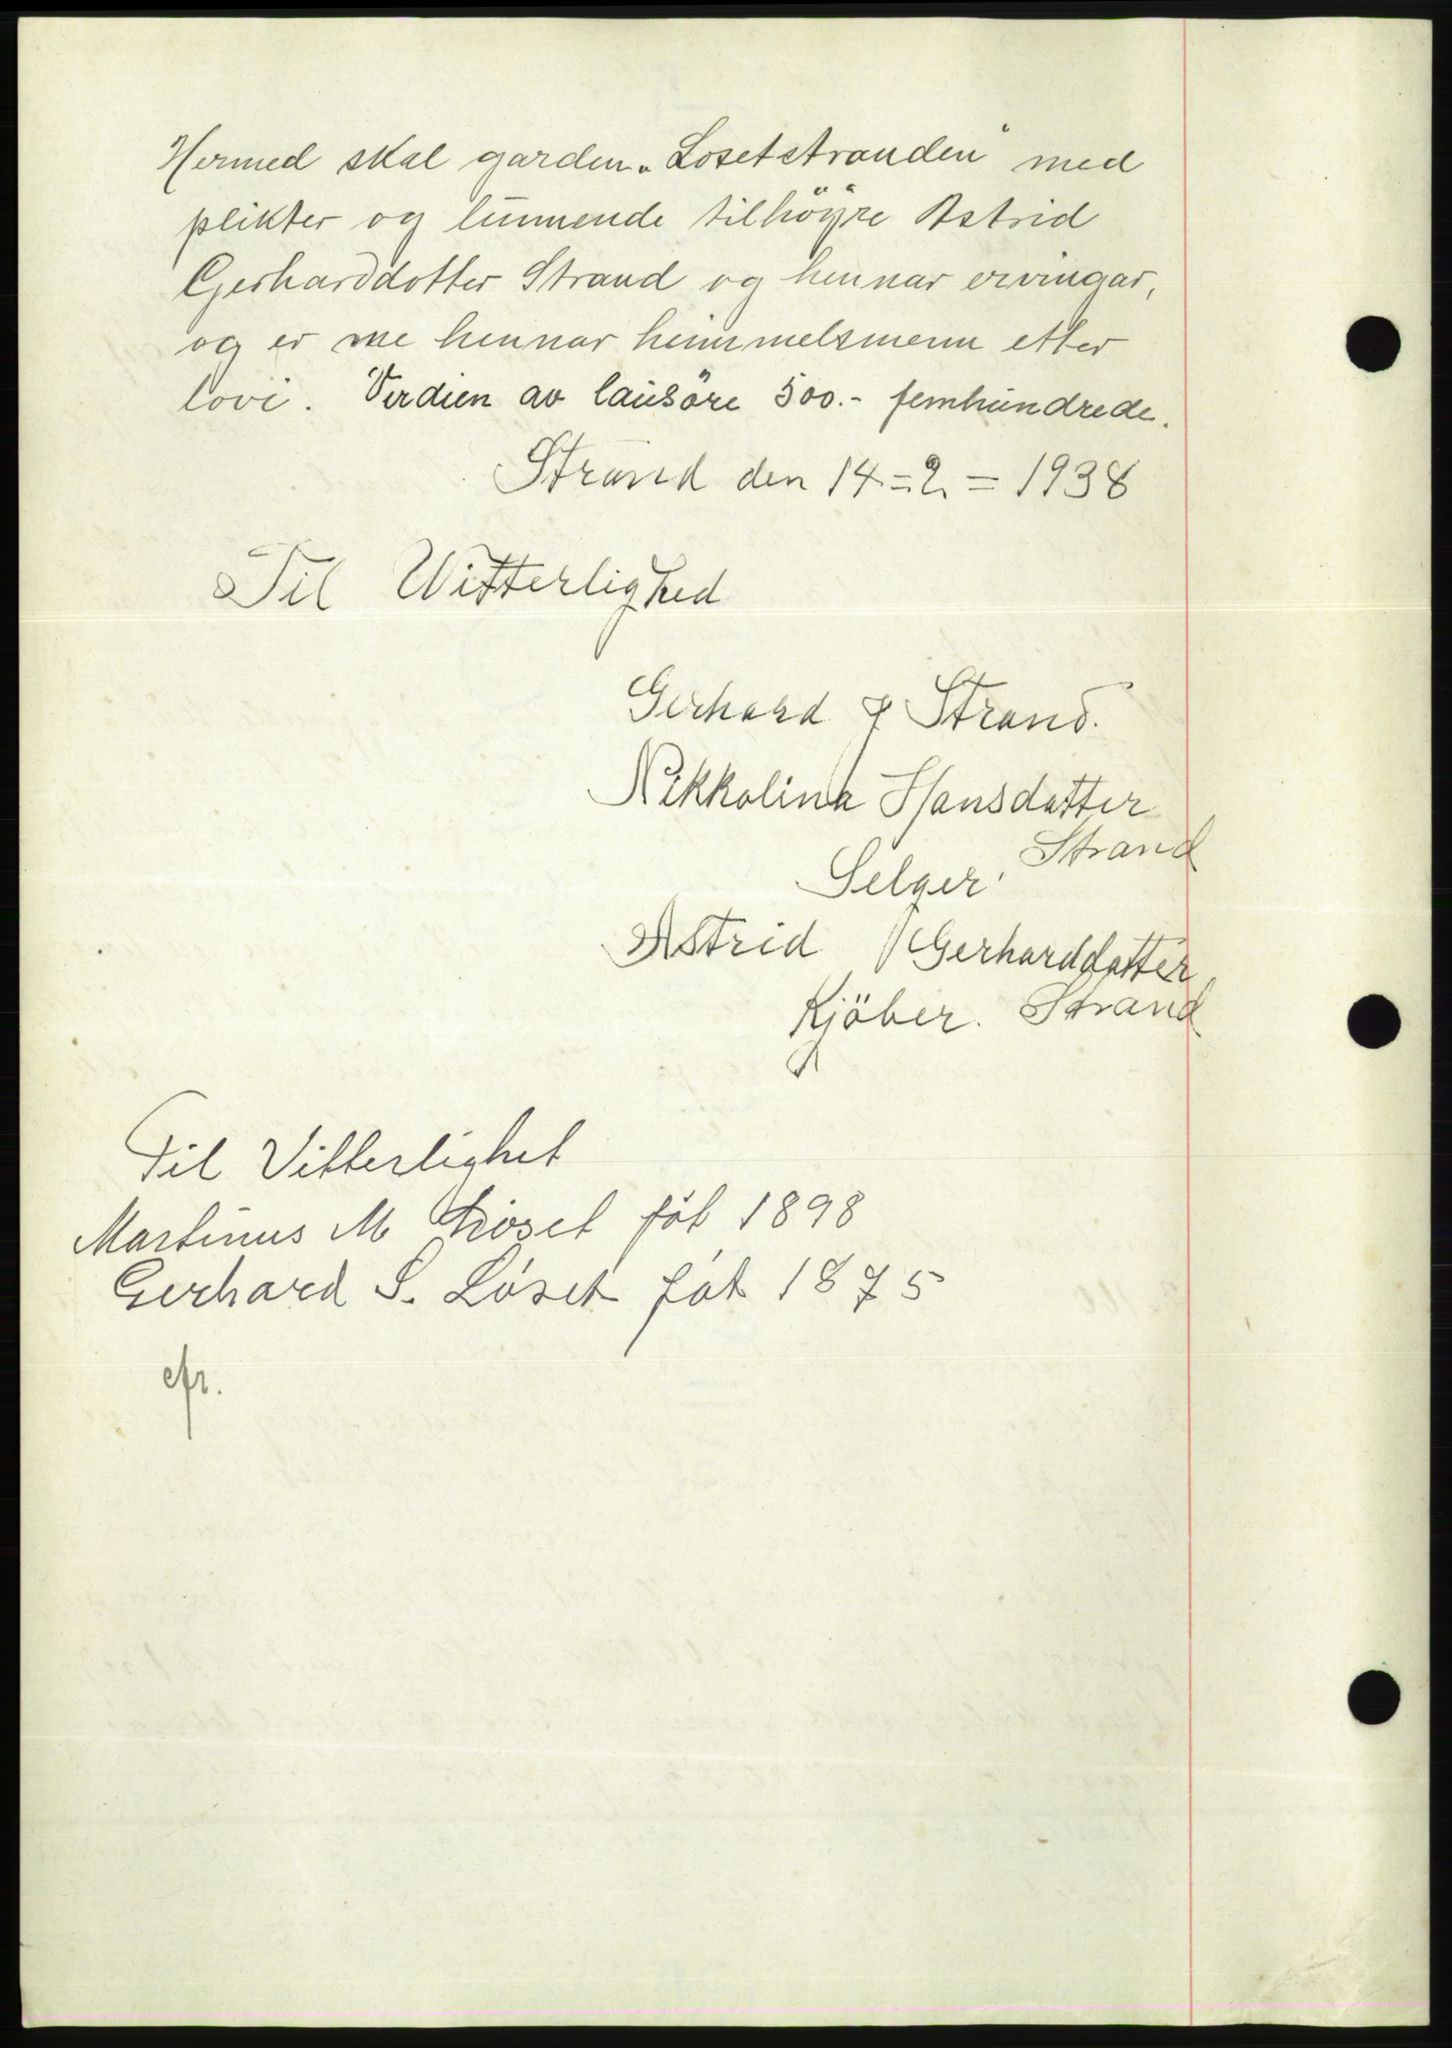 Hermed skal garden „Losetstranden" med
plikter og lunnende tilhöyre Astrid
Gerharddotter Strand og hennar ervingar,
og er me hennar heimmelsmenn etter
lovi. Verdien av lausöre 500.- femhundrede.
Strand den 14=2.=1938
Til Witterlighed
Gerhard J Strand.
Nikkolina Hansdatter
Strand
Selger.
Astrid Gerharddatter
Kjöber. Strand
Til Vitterlighet
Martinus M Löset föt 1898
Gerhard S. Löset föt 1875
cfr.